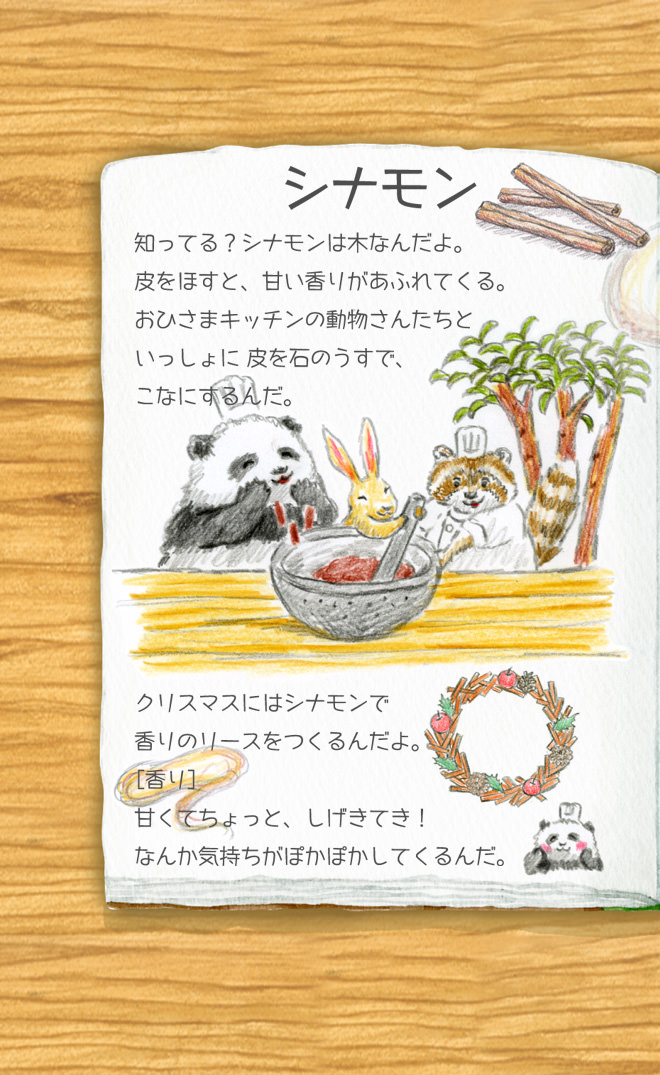 シナモン
知ってる？シナモンは木なんだよ。
皮をほすと、甘い香りがあふれてくる。
おひさまキッチンの動物さんたちと
いっしょに 皮を石のうすで、
こなにするんだ。
クリスマスにはシナモンで
香りのリースをつくるんだよ。
[香り]
甘くてちょっと、しげきてき！
なんか気持ちがぽかぽかしてくるんだ。